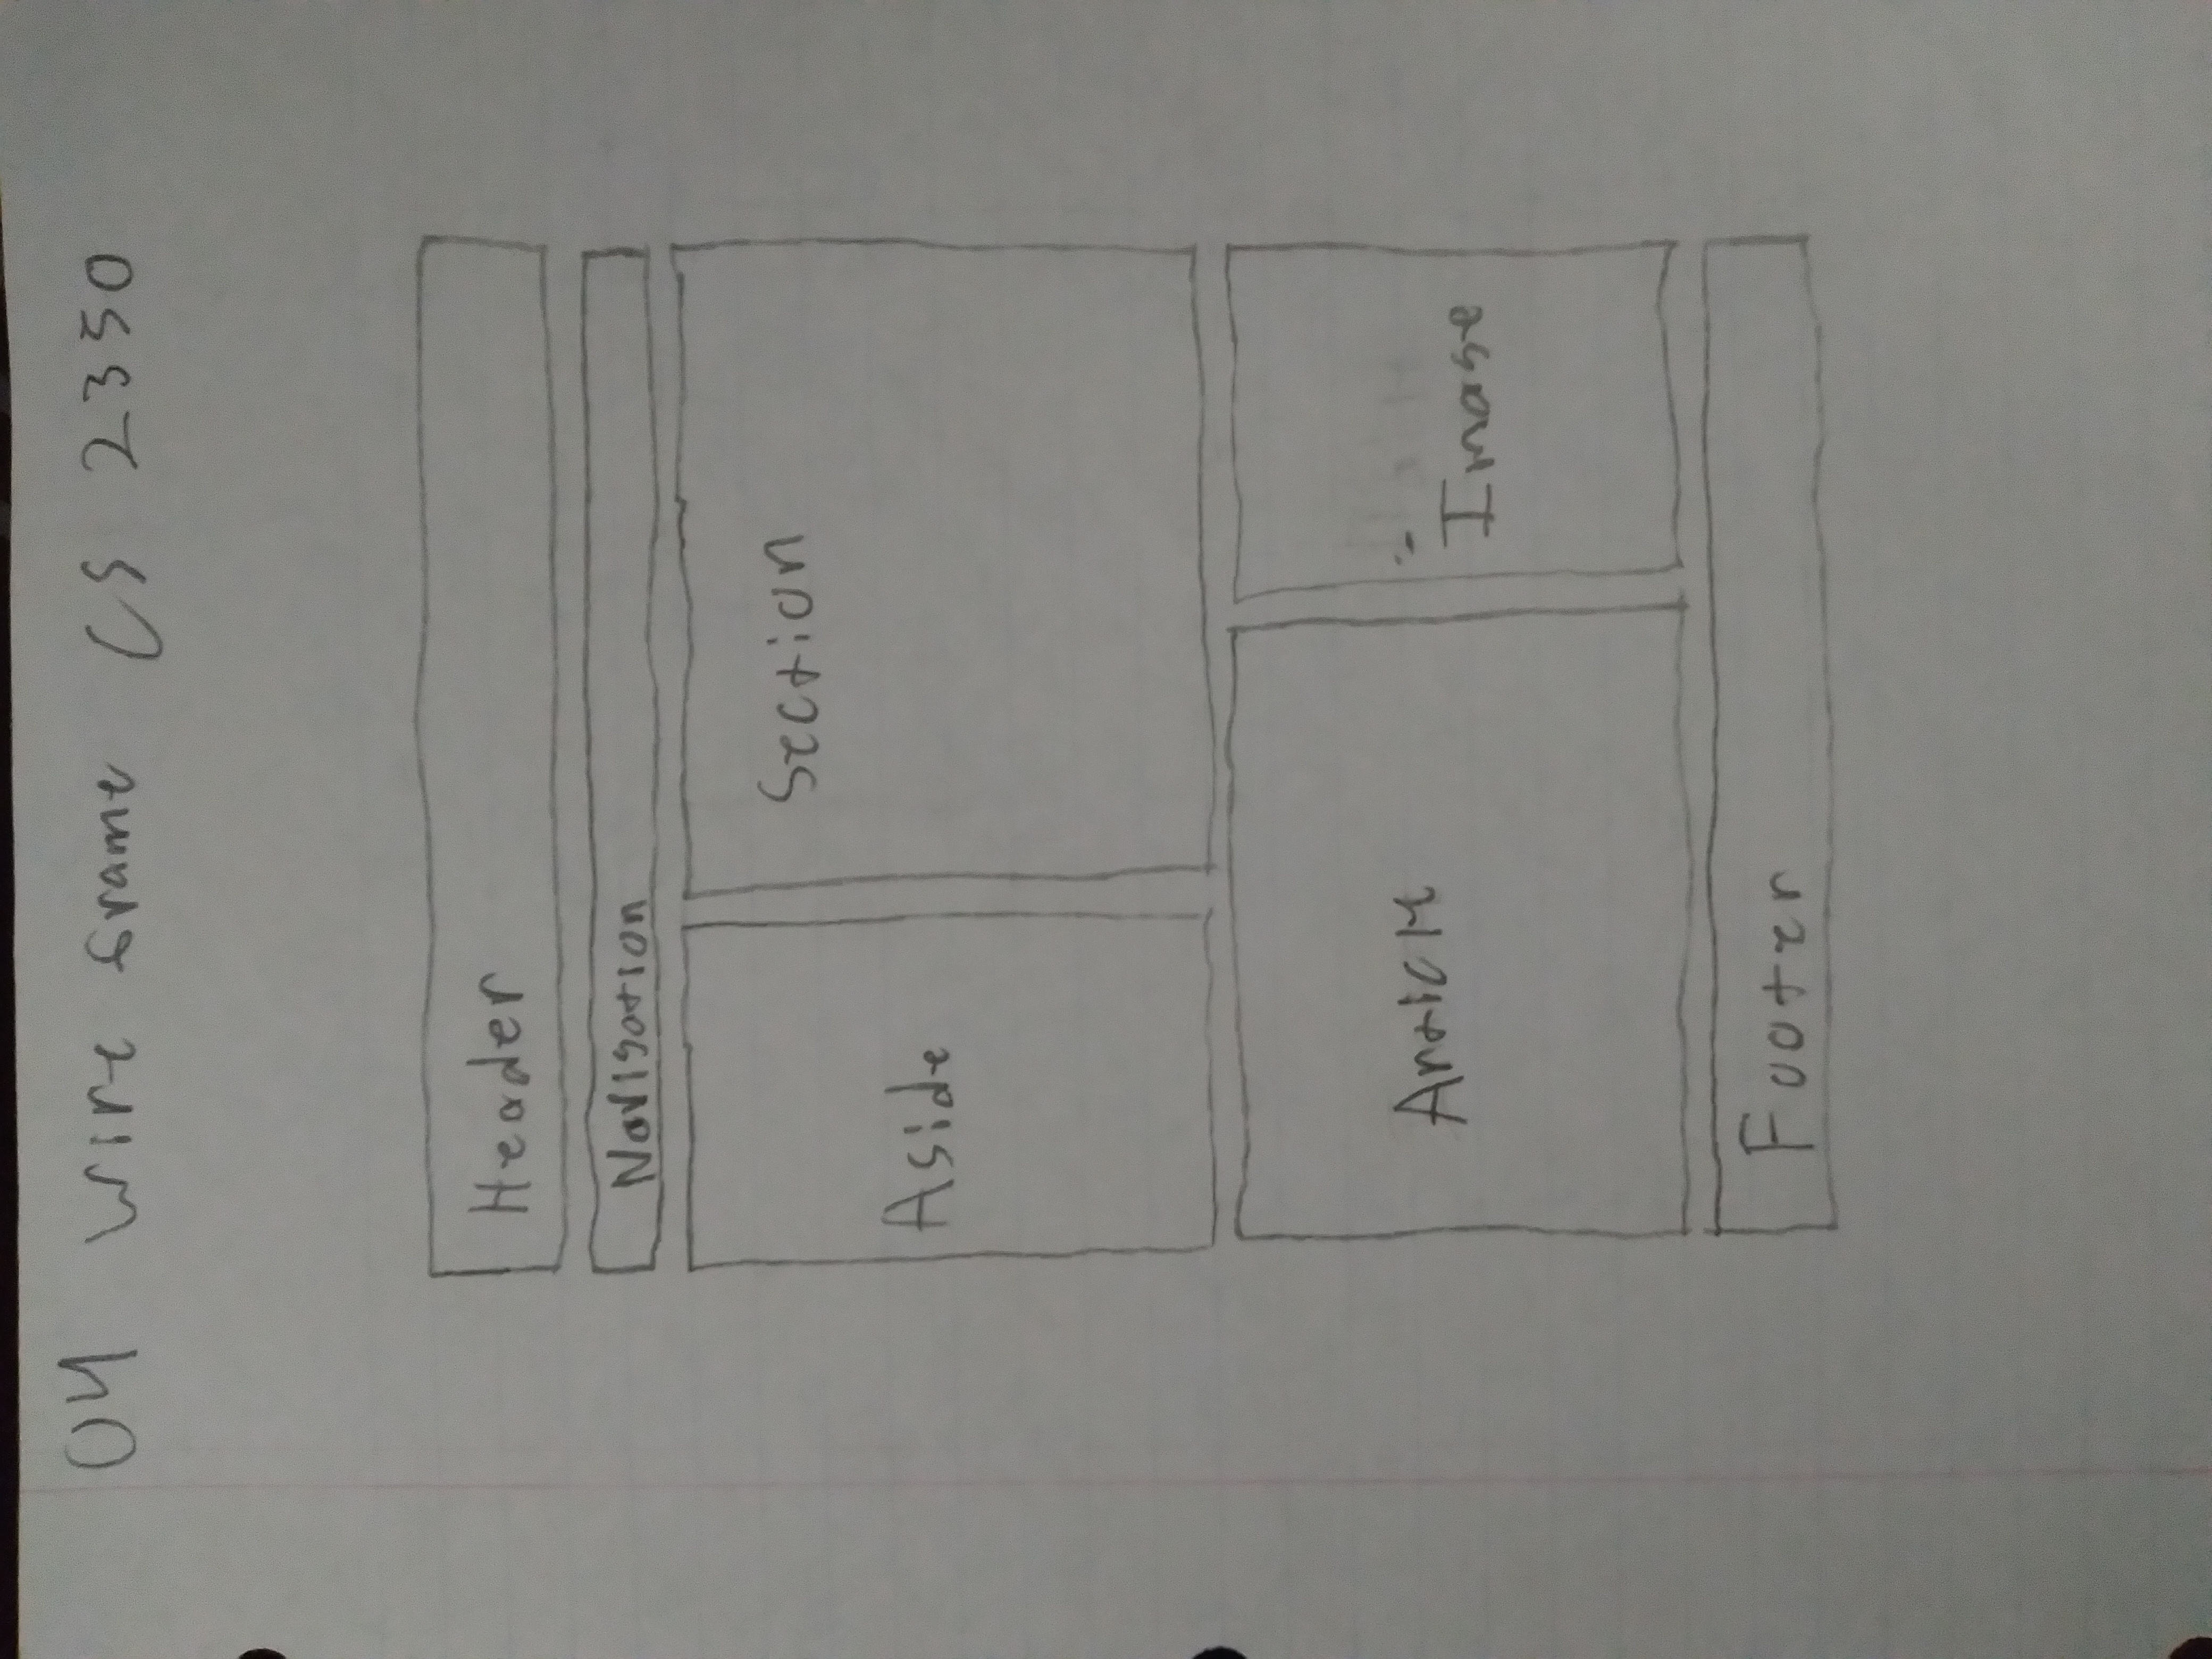 04 Wire frame CS 2350
Header
Navigation
Section
Aside
Article
Image
Footer